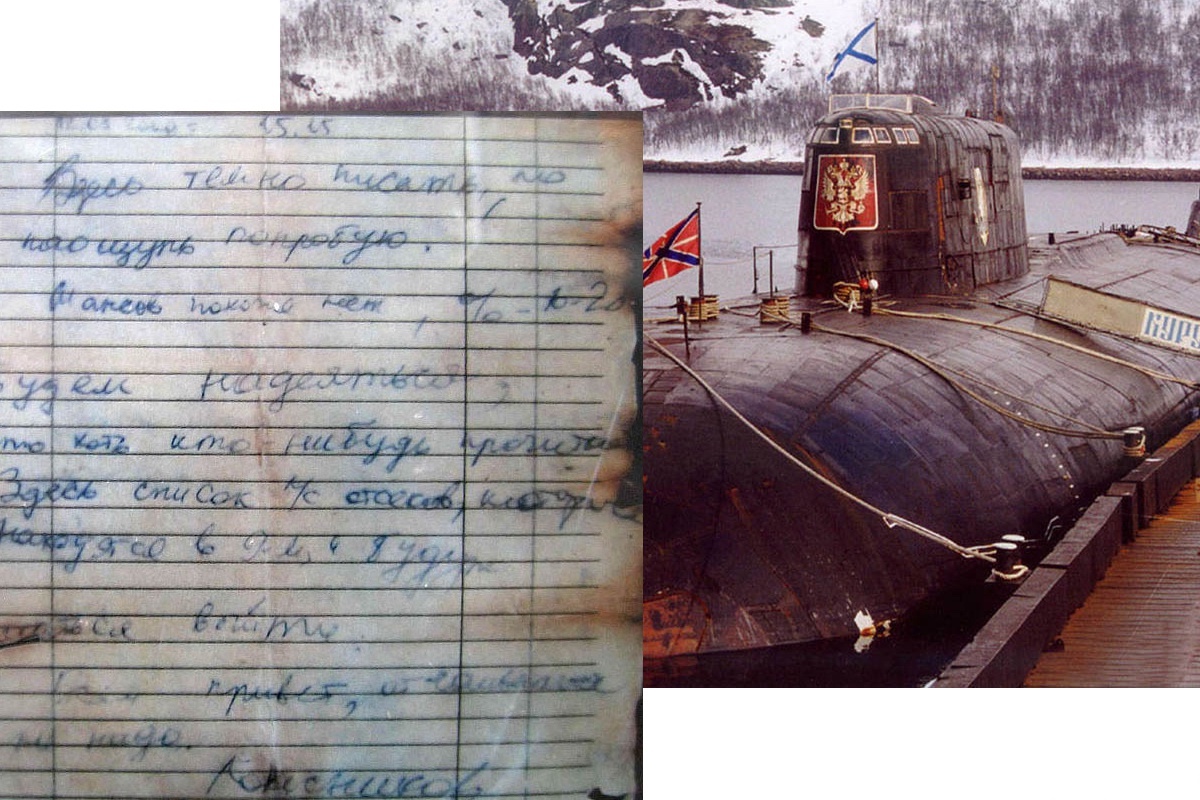 15.15
Здесь темно писать, но
наощупь попробую.
Шансов похоже нет, % - 10-20
Будем надеяться,
что хоть кто-нибудь прочитает
Здесь список л/с отсеков, которые
находятся в 9-м и будут
выйти.
привет, отчаиваться
не надо.
Колесников
КУРС